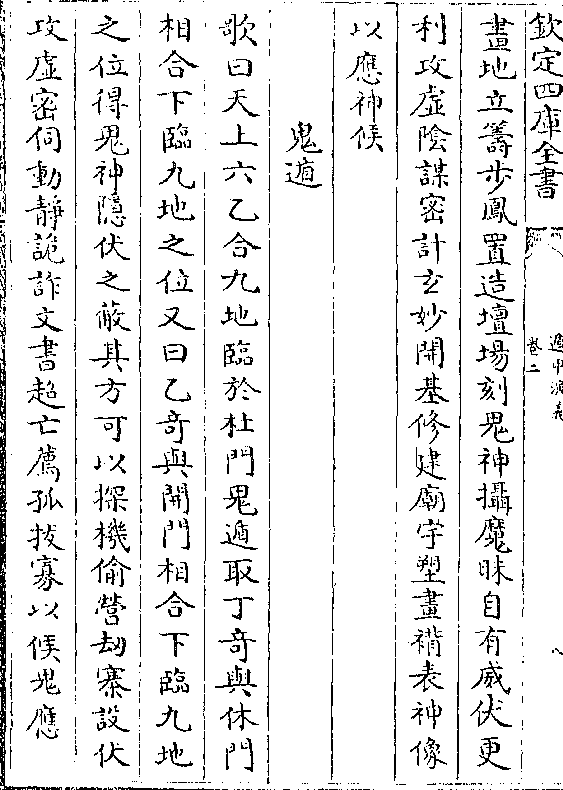 欽定四庫全書
遁甲演義
卷二
八
畫地立籌步鳳置造壇場刻鬼神攝魔昧自有威伏更
利攻虛陰謀密計玄妙開基修建廟宇塑畫褙表神像
以應神候
鬼遁
歌曰天上六乙合九地臨於杜門鬼遁取丁奇與休門
相合下臨九地之位又曰乙奇與開門相合下臨九地
之位得鬼神隱伏之蔽其方可以探機偷營劫寨設伏
攻虛密伺動靜詭詐文書超亡薦孤拔寡以候鬼應